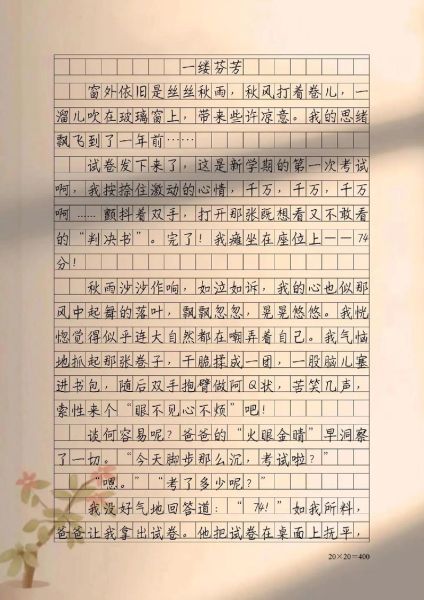 一缕芬芳
窗外依旧是丝丝秋雨，秋风打着卷儿，一
溜儿吹在玻璃窗上，带来些许凉意。我的思绪
飘飞到了一年前……
试卷发下来了，这是新学期的第一次考试
啊，我按捺住激动的心情，千万，千万，千万
啊……颤抖着双手，打开那张既想看又不敢看
的“判决书”。完了！我瘫坐在座位上——74
分！
秋雨沙沙作响，如泣如诉，我的心也似那
风中起舞的落叶，飘飘忽忽，晃晃悠悠。我恍
惚觉得似乎连大自然都在嘲弄着自己。我气恼
地抓起那张卷子，干脆揉成一团，一股脑儿塞
进书包，随后双手抱臂做阿Q状，苦笑几声，
索性来个“眼不见心不烦”吧！
谈何容易呢？爸爸的“火眼金睛”早洞察
了一切。“今天脚步那么沉，考试啦？”
“嗯。”“考了多少呢？”
我没好气地回答道：“74！”如我所料，
爸爸让我拿出试卷。他把试卷在桌面上抚平，
20×20=400